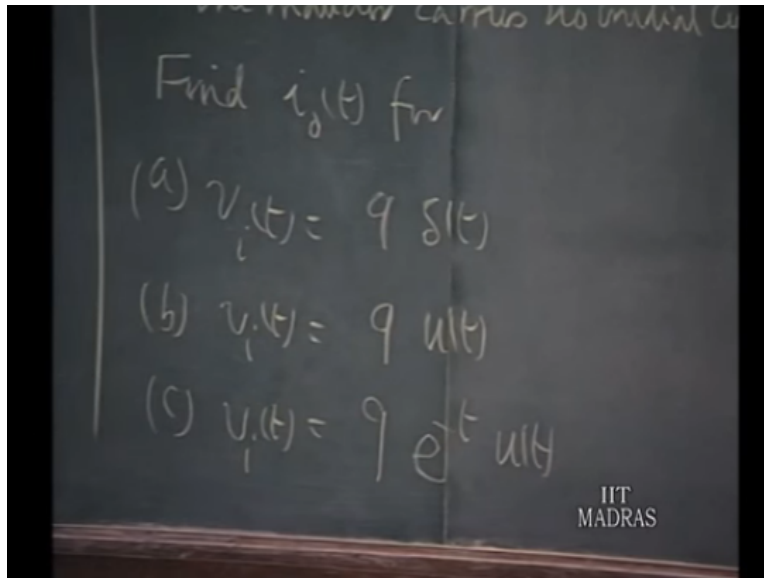 carries no initial
Find i₀(t) for
(a) vᵢ(t) = 9 δ(t)
(b) vᵢ(t) = 9 u(t)
(c) vᵢ(t) = 9 e⁻ᵗ u(t)
IIT
MADRAS